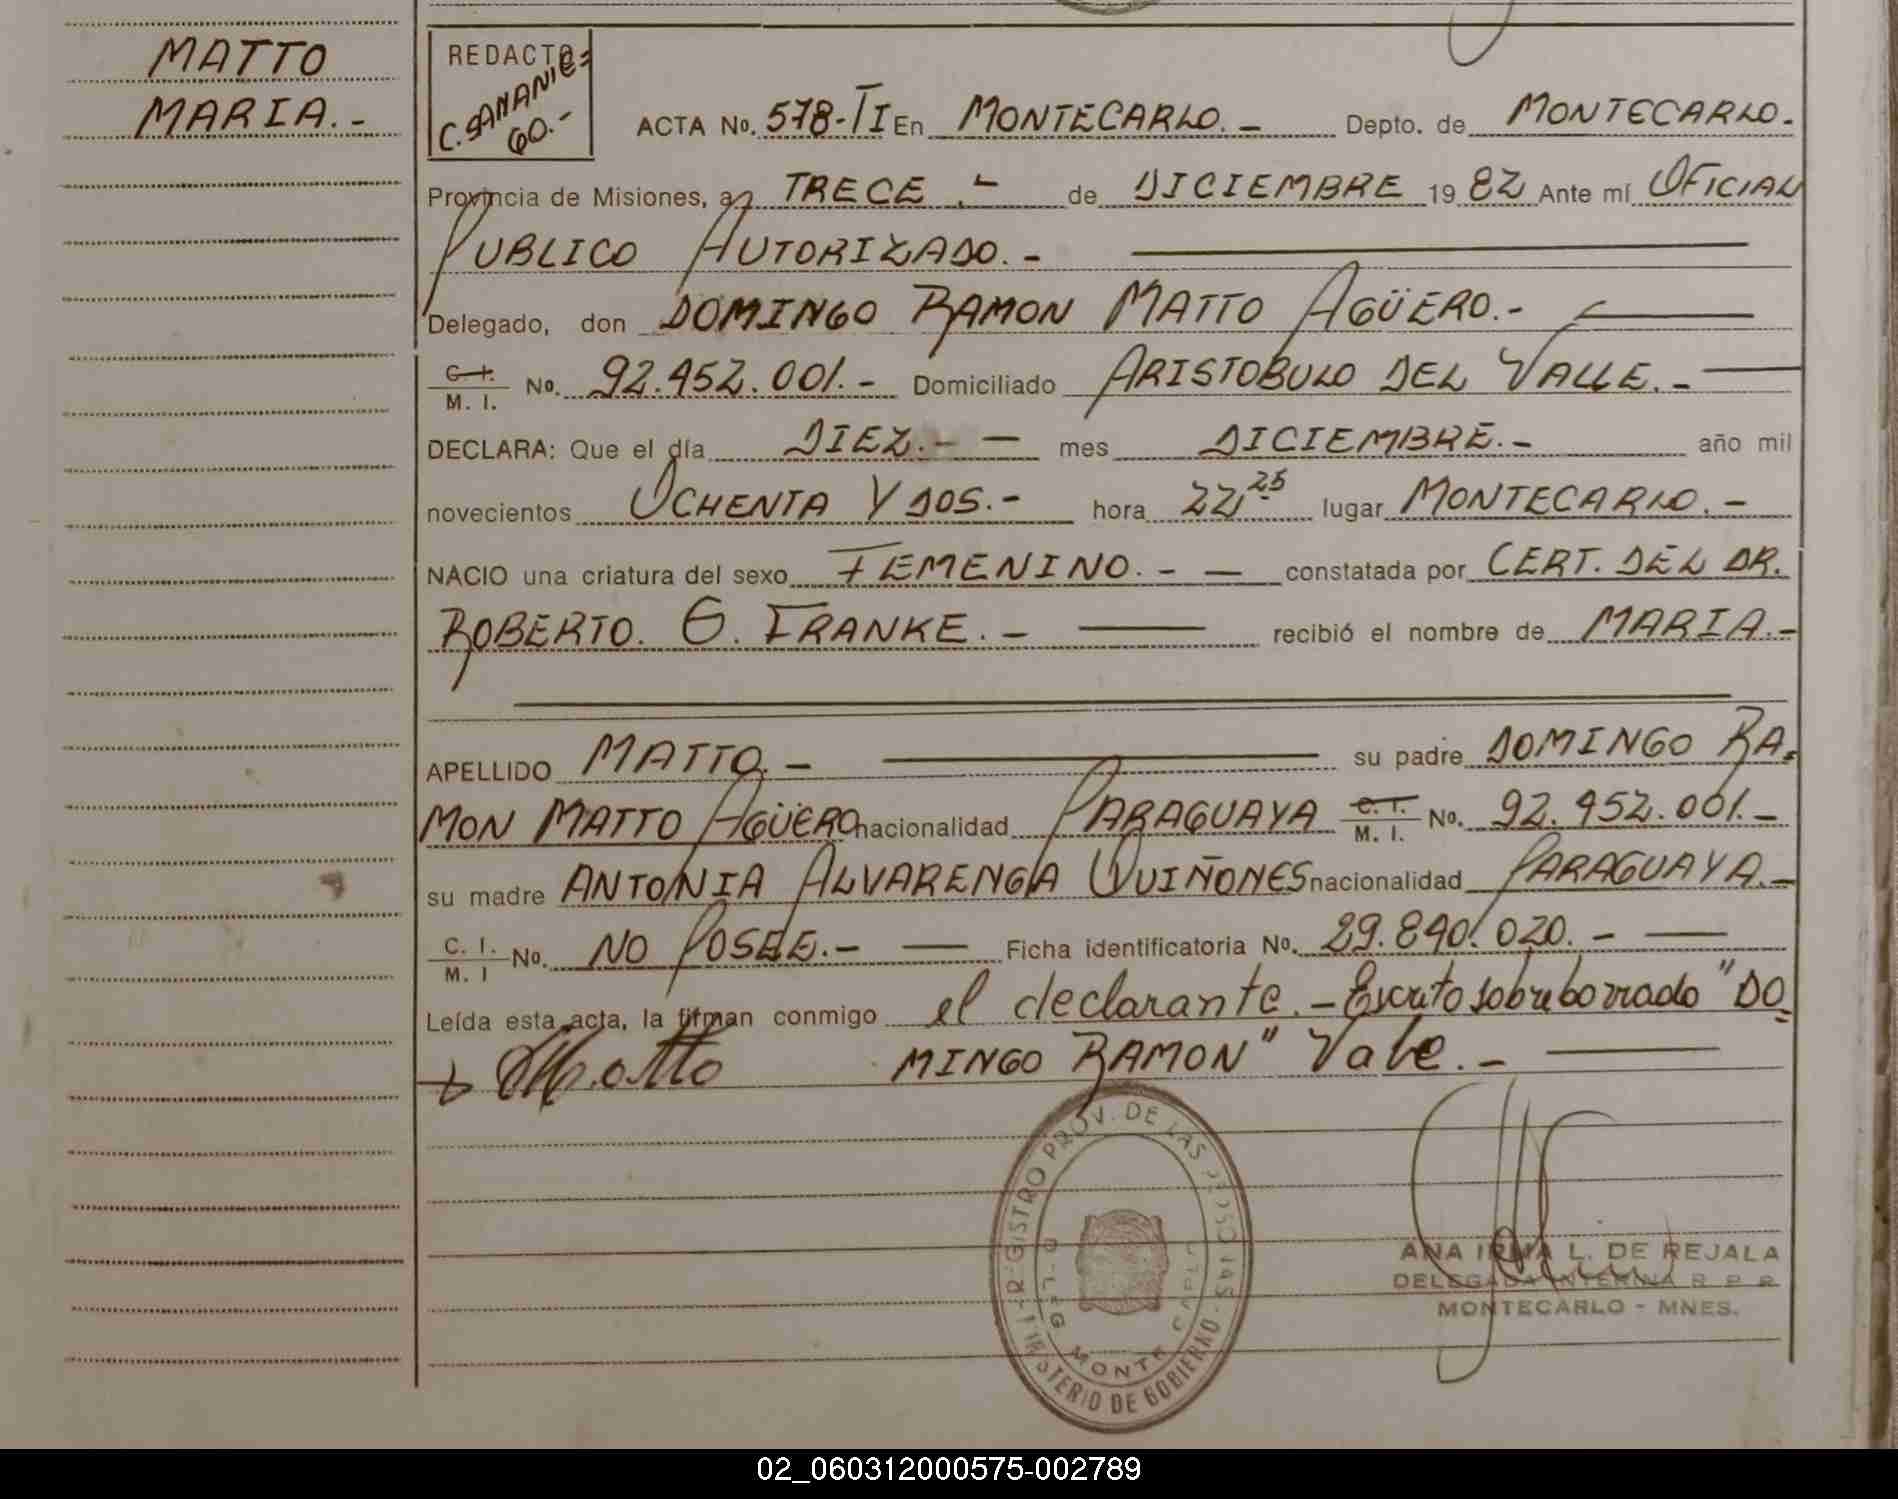 MATTO
MARIA.-
REDACTO
C. SANANIE=
GO.-
ACTA No. 578-TI En MONTECARLO.- Depto. de MONTECARLO.
Provincia de Misiones, a TRECE.- de DICIEMBRE 1982 Ante mí OFICIAL
PUBLICO AUTORIZADO.-
Delegado, don DOMINGO RAMON MATTO AGÜERO.-
C. I. / M. I. No. 92.452.001.- Domiciliado ARISTOBULO DEL VALLE.-
DECLARA: Que el día DIEZ.- mes DICIEMBRE.- año mil
novecientos OCHENTA Y DOS.- hora 22,25 lugar MONTECARLO.-
NACIO una criatura del sexo FEMENINO.- constatada por CERT. DEL DR.
ROBERTO. G. FRANKE.- recibió el nombre de MARIA.-
APELLIDO MATTO.- su padre DOMINGO RA=
MON MATTO AGÜERO nacionalidad PARAGUAYA C. I. / M. I. No. 92.452.001.-
su madre ANTONIA ALVARENGA QUIÑONES nacionalidad PARAGUAYA.-
C. I. / M. I No. NO POSEE.- Ficha identificatoria No. 29.840.020.-
Leída esta acta, la firman conmigo el declarante.- Escrito sobreborrado "DO=
MINGO RAMON" Vale.-
REGISTRO PROV. DE LAS PERSONAS
MINISTERIO DE GOBIERNO
DELEG. MONTECARLO
ANA IRMA L. DE REJALA
DELEGADA INTERINA R. P. P.
MONTECARLO - MNES.
02_060312000575-002789